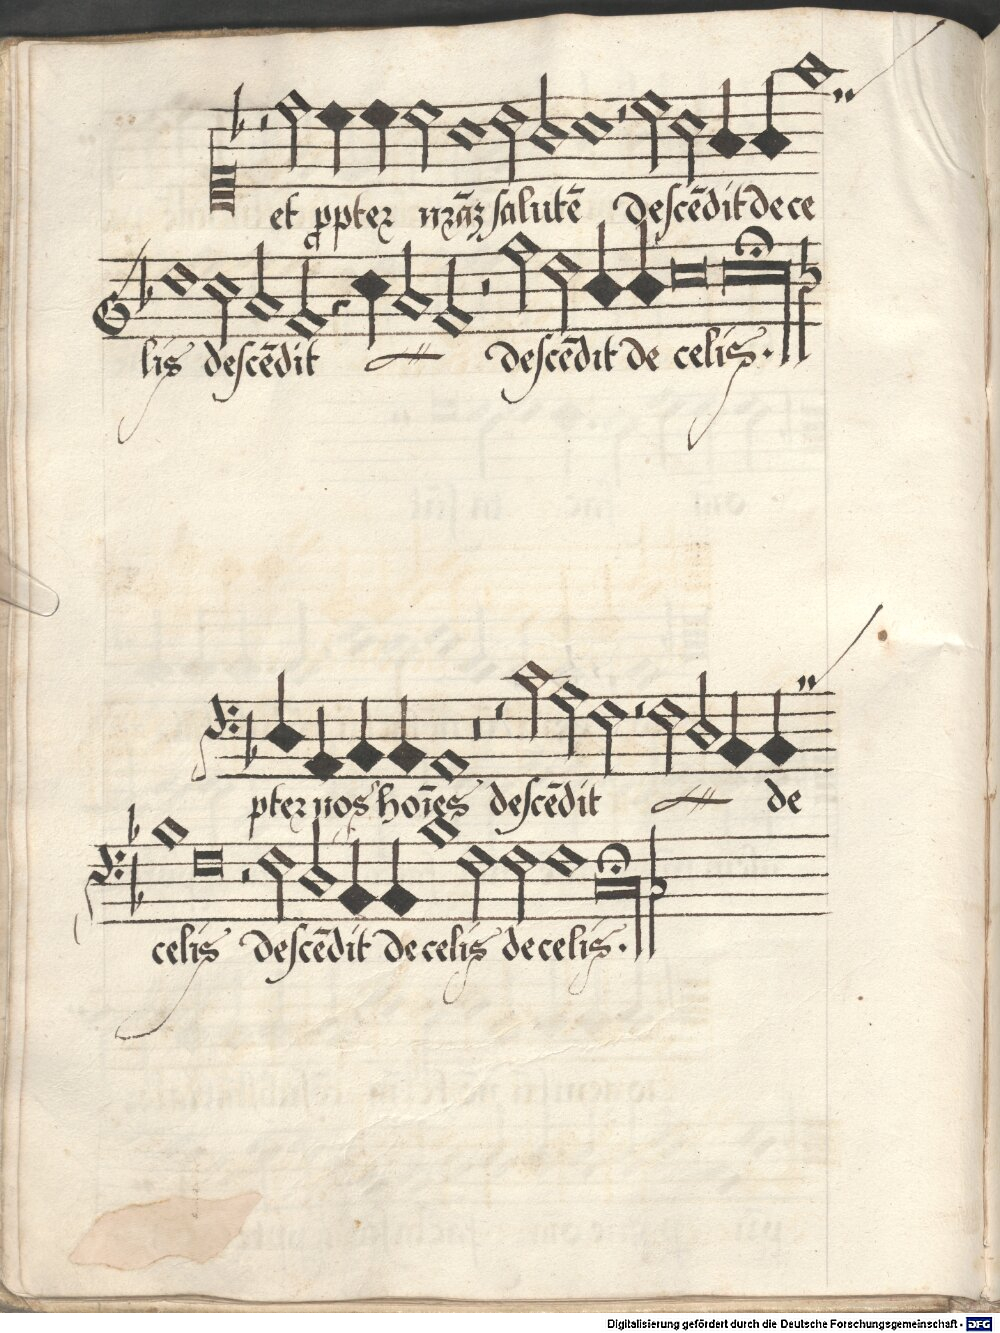 et ꝓpter nr̄aʒ salutē descēdit de ce
lis descēdit descēdit de celis.
pter nos hoı̄es descēdit de
celis descēdit de celis de celis.
Digitalisierung gefördert durch die Deutsche Forschungsgemeinschaft - DFG